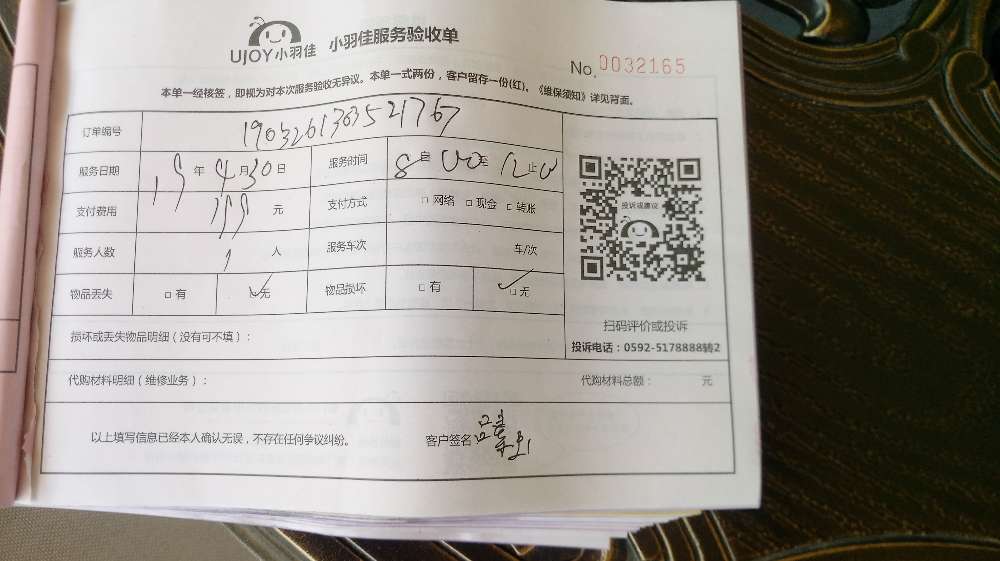 UJOY小羽佳 小羽佳服务验收单
No. 0032165
本单一经核签，即视为对本次服务验收无异议。本单一式两份，客户留存一份(红)。《维保须知》详见背面。
订单编号 1903261363521767
服务日期 19年4月30日 服务时间 8自00至12止00
支付费用 199元 支付方式 □网络 □现金 □转账
服务人数 1人 服务车次 车/次
物品丢失 □有 □无 物品损坏 □有 □无
投诉或建议
扫码评价或投诉
投诉电话：0592-5178888转2
损坏或丢失物品明细（没有可不填）：
代购材料明细（维修业务）： 代购材料总额： 元
以上填写信息已经本人确认无误，不存在任何争议纠纷。 客户签名